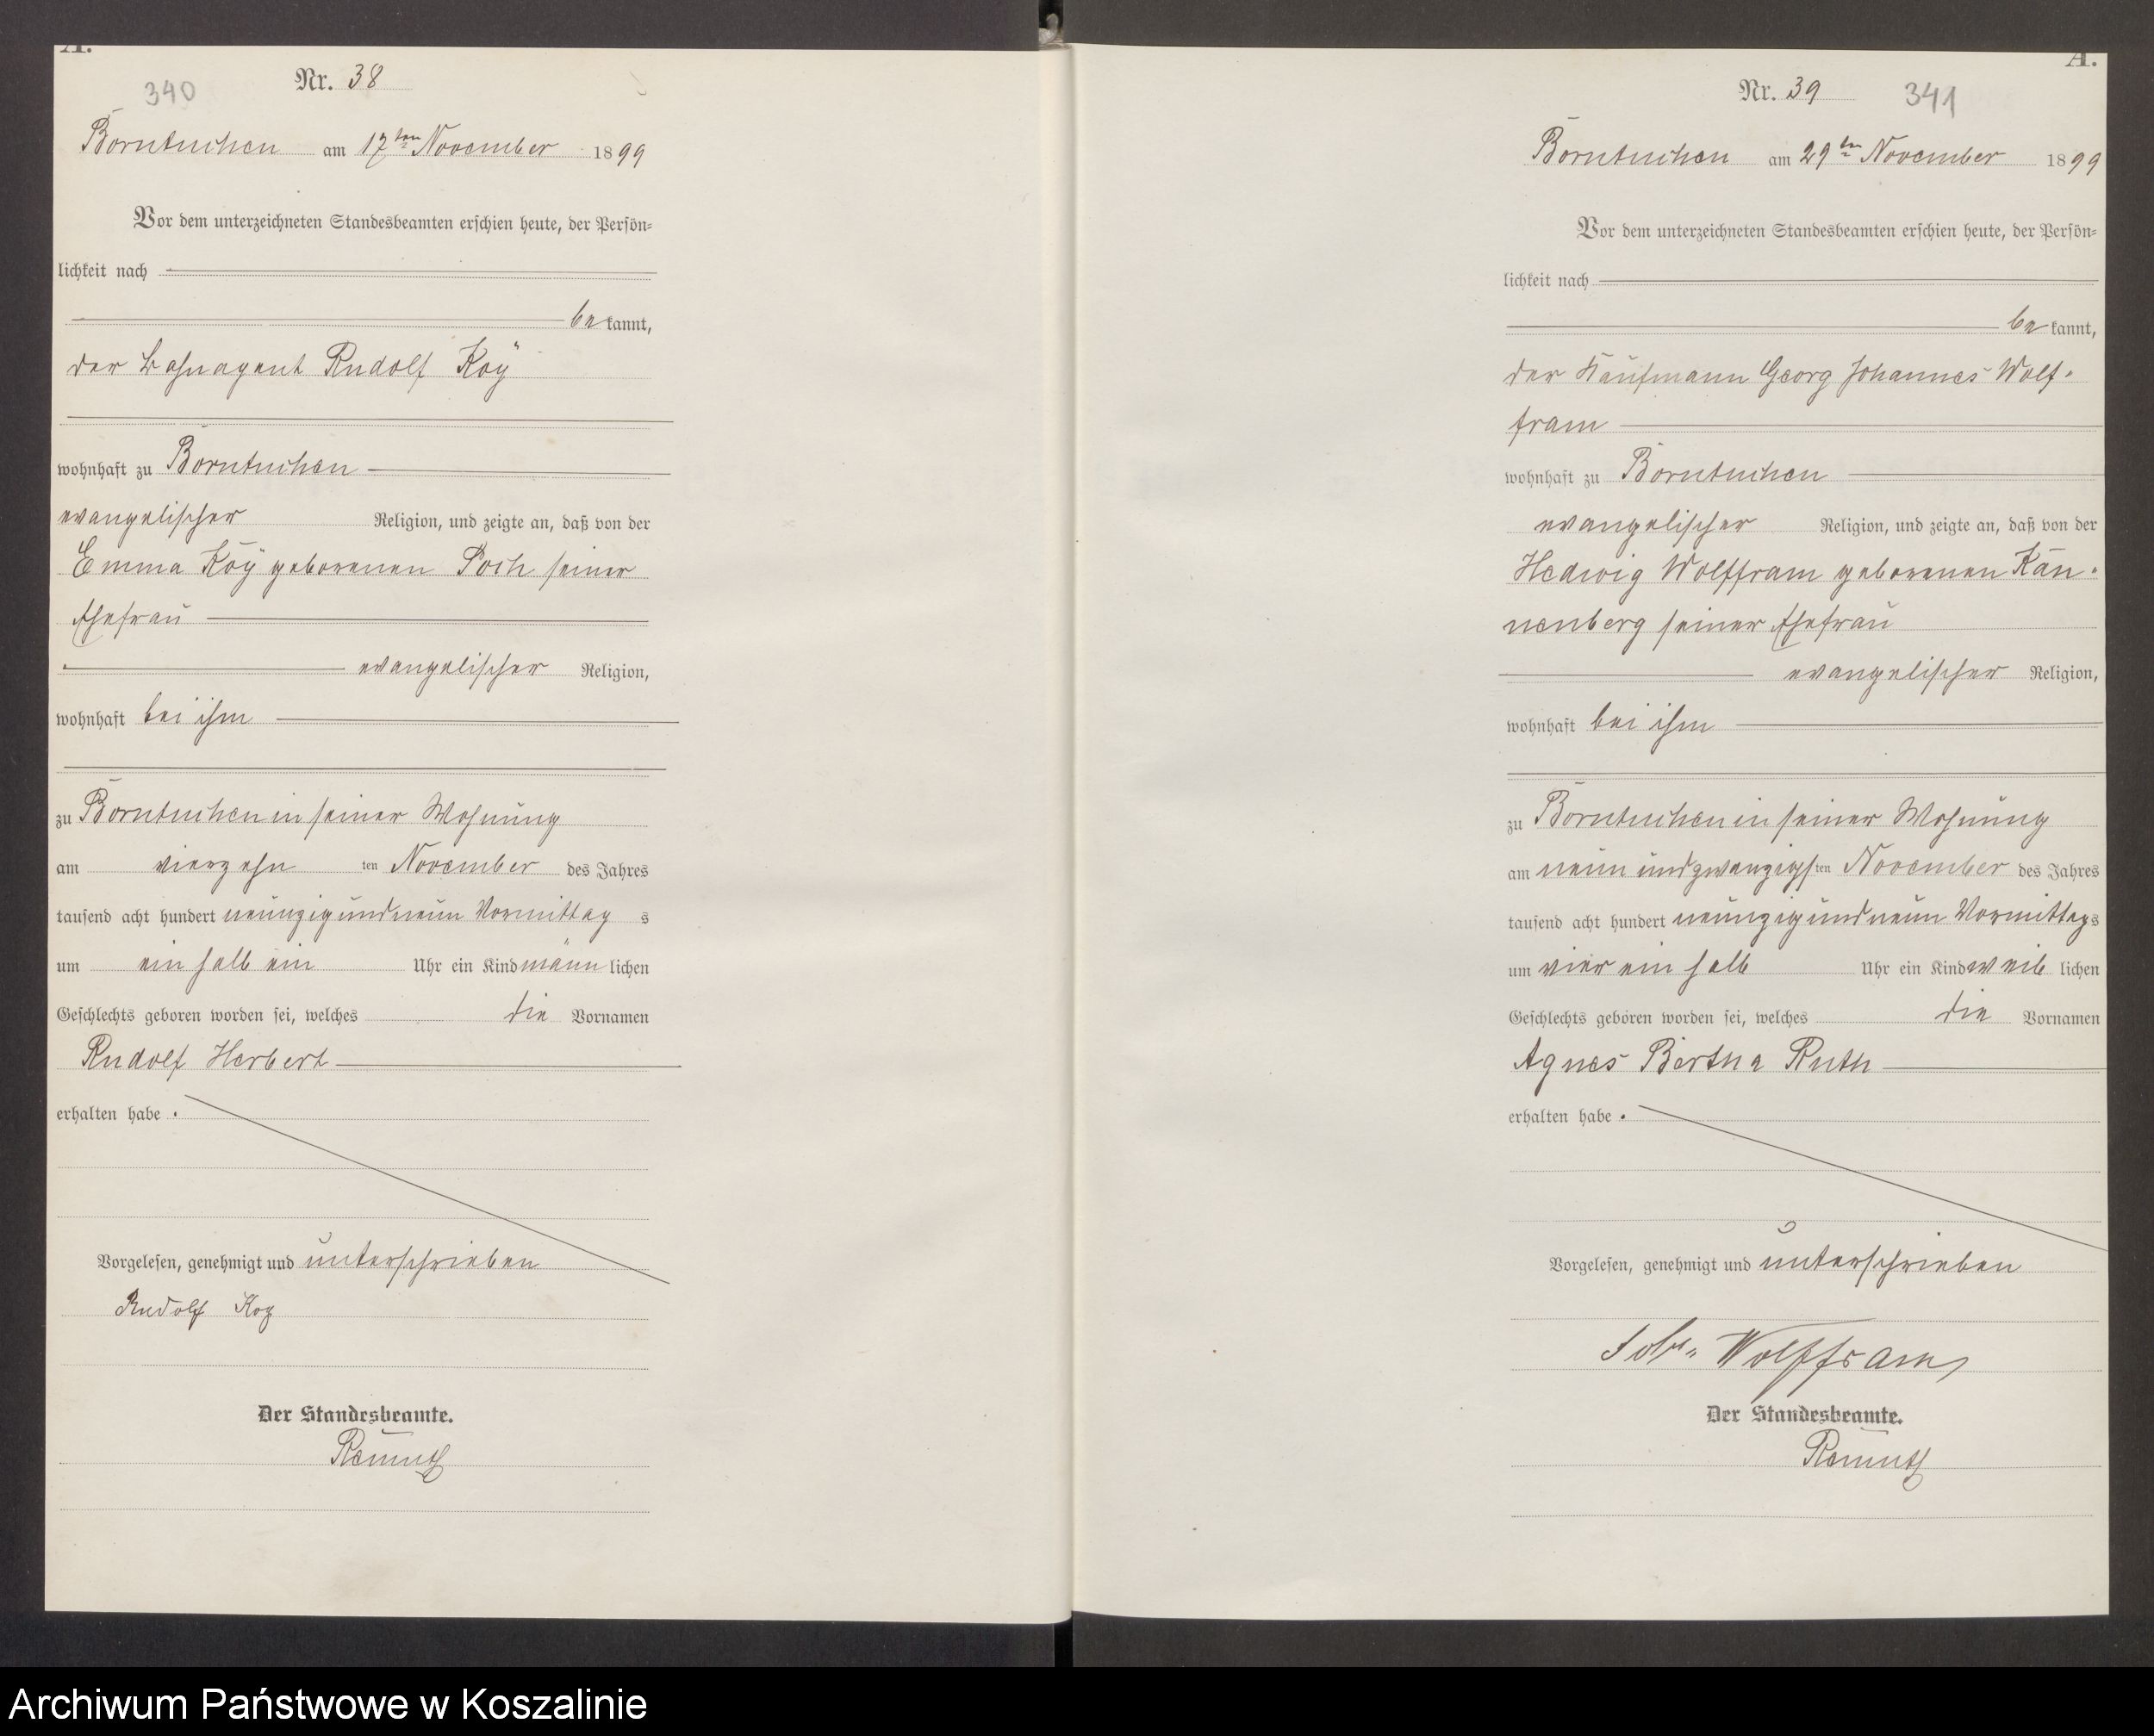 A.
340
Nr. 38
Borntuchen am 17ten November 1899
Vor dem unterzeichneten Standesbeamten erschien heute, der Persön-
lichkeit nach
be kannt,
der Bahnagent Rudolf Koÿ
wohnhaft zu Borntuchen
evangelischer Religion, und zeigte an, daß von der
Emma Koÿ geborenen Poch seiner
Ehefrau
evangelischer Religion,
wohnhaft bei ihm
zu Borntuchen in seiner Wohnung
am vierzehn ten November des Jahres
tausend acht hundert neunzig und neun Vormittag s
um ein halb ein Uhr ein Kind männ lichen
Geschlechts geboren worden sei, welches die Vornamen
Rudolf Herbert
erhalten habe .
Vorgelesen, genehmigt und unterschrieben
Rudolf Koy
Der Standesbeamte.
A.
Nr. 39 341
Borntuchen am 29ten November 1899
Vor dem unterzeichneten Standesbeamten erschien heute, der Persön-
lichkeit nach
be kannt,
der Kaufmann Georg Johannes Wolf-
fram
wohnhaft zu Borntuchen
evangelischer Religion, und zeigte an, daß von der
Hedwig Wolffram geborenen Kan-
nenberg seiner Ehefrau
evangelischer Religion,
wohnhaft bei ihm
zu Borntuchen in seiner Wohnung
am neun und zwanzigsten November des Jahres
tausend acht hundert neunzig und neun Vormittags
um vier ein halb Uhr ein Kind weib lichen
Geschlechts geboren worden sei, welches die Vornamen
Agnes Bertha Ruth
erhalten habe .
Vorgelesen, genehmigt und unterschrieben
Wolffram
Der Standesbeamte.
Archiwum Państwowe w Koszalinie